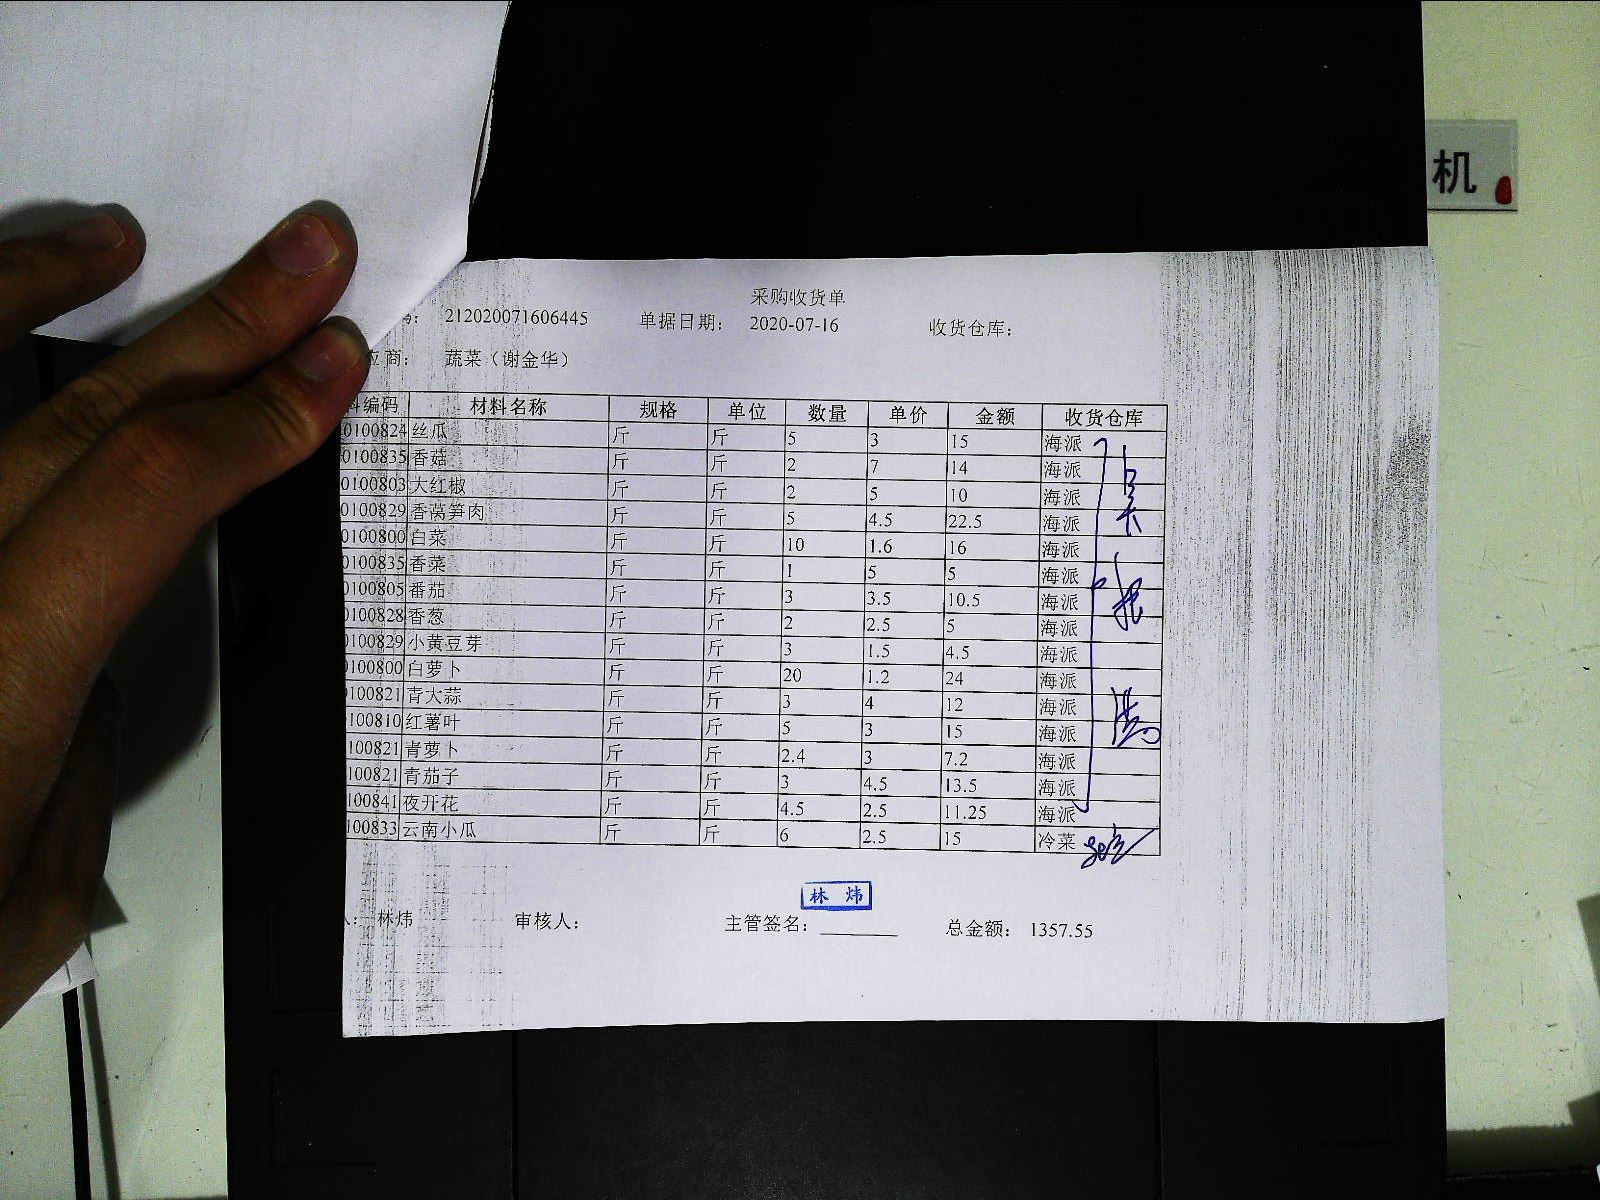 机
采购收货单
212020071606445 单据日期： 2020-07-16 收货仓库：
应商： 蔬菜（谢金华）
料编码 材料名称 规格 单位 数量 单价 金额 收货仓库
0100824 丝瓜 斤 斤 5 3 15 海派
0100835 香菇 斤 斤 2 7 14 海派
0100803 大红椒 斤 斤 2 5 10 海派
0100829 香莴笋肉 斤 斤 5 4.5 22.5 海派
0100800 白菜 斤 斤 10 1.6 16 海派
0100835 香菜 斤 斤 1 5 5 海派
0100805 番茄 斤 斤 3 3.5 10.5 海派
0100828 香葱 斤 斤 2 2.5 5 海派
0100829 小黄豆芽 斤 斤 3 1.5 4.5 海派
0100800 白萝卜 斤 斤 20 1.2 24 海派
0100821 青大蒜 斤 斤 3 4 12 海派
0100810 红薯叶 斤 斤 5 3 15 海派
100821 青萝卜 斤 斤 2.4 3 7.2 海派
100821 青茄子 斤 斤 3 4.5 13.5 海派
100841 夜开花 斤 斤 4.5 2.5 11.25 海派
100833 云南小瓜 斤 斤 6 2.5 15 冷菜
林 炜
人： 林炜 审核人： 主管签名： 总金额： 1357.55